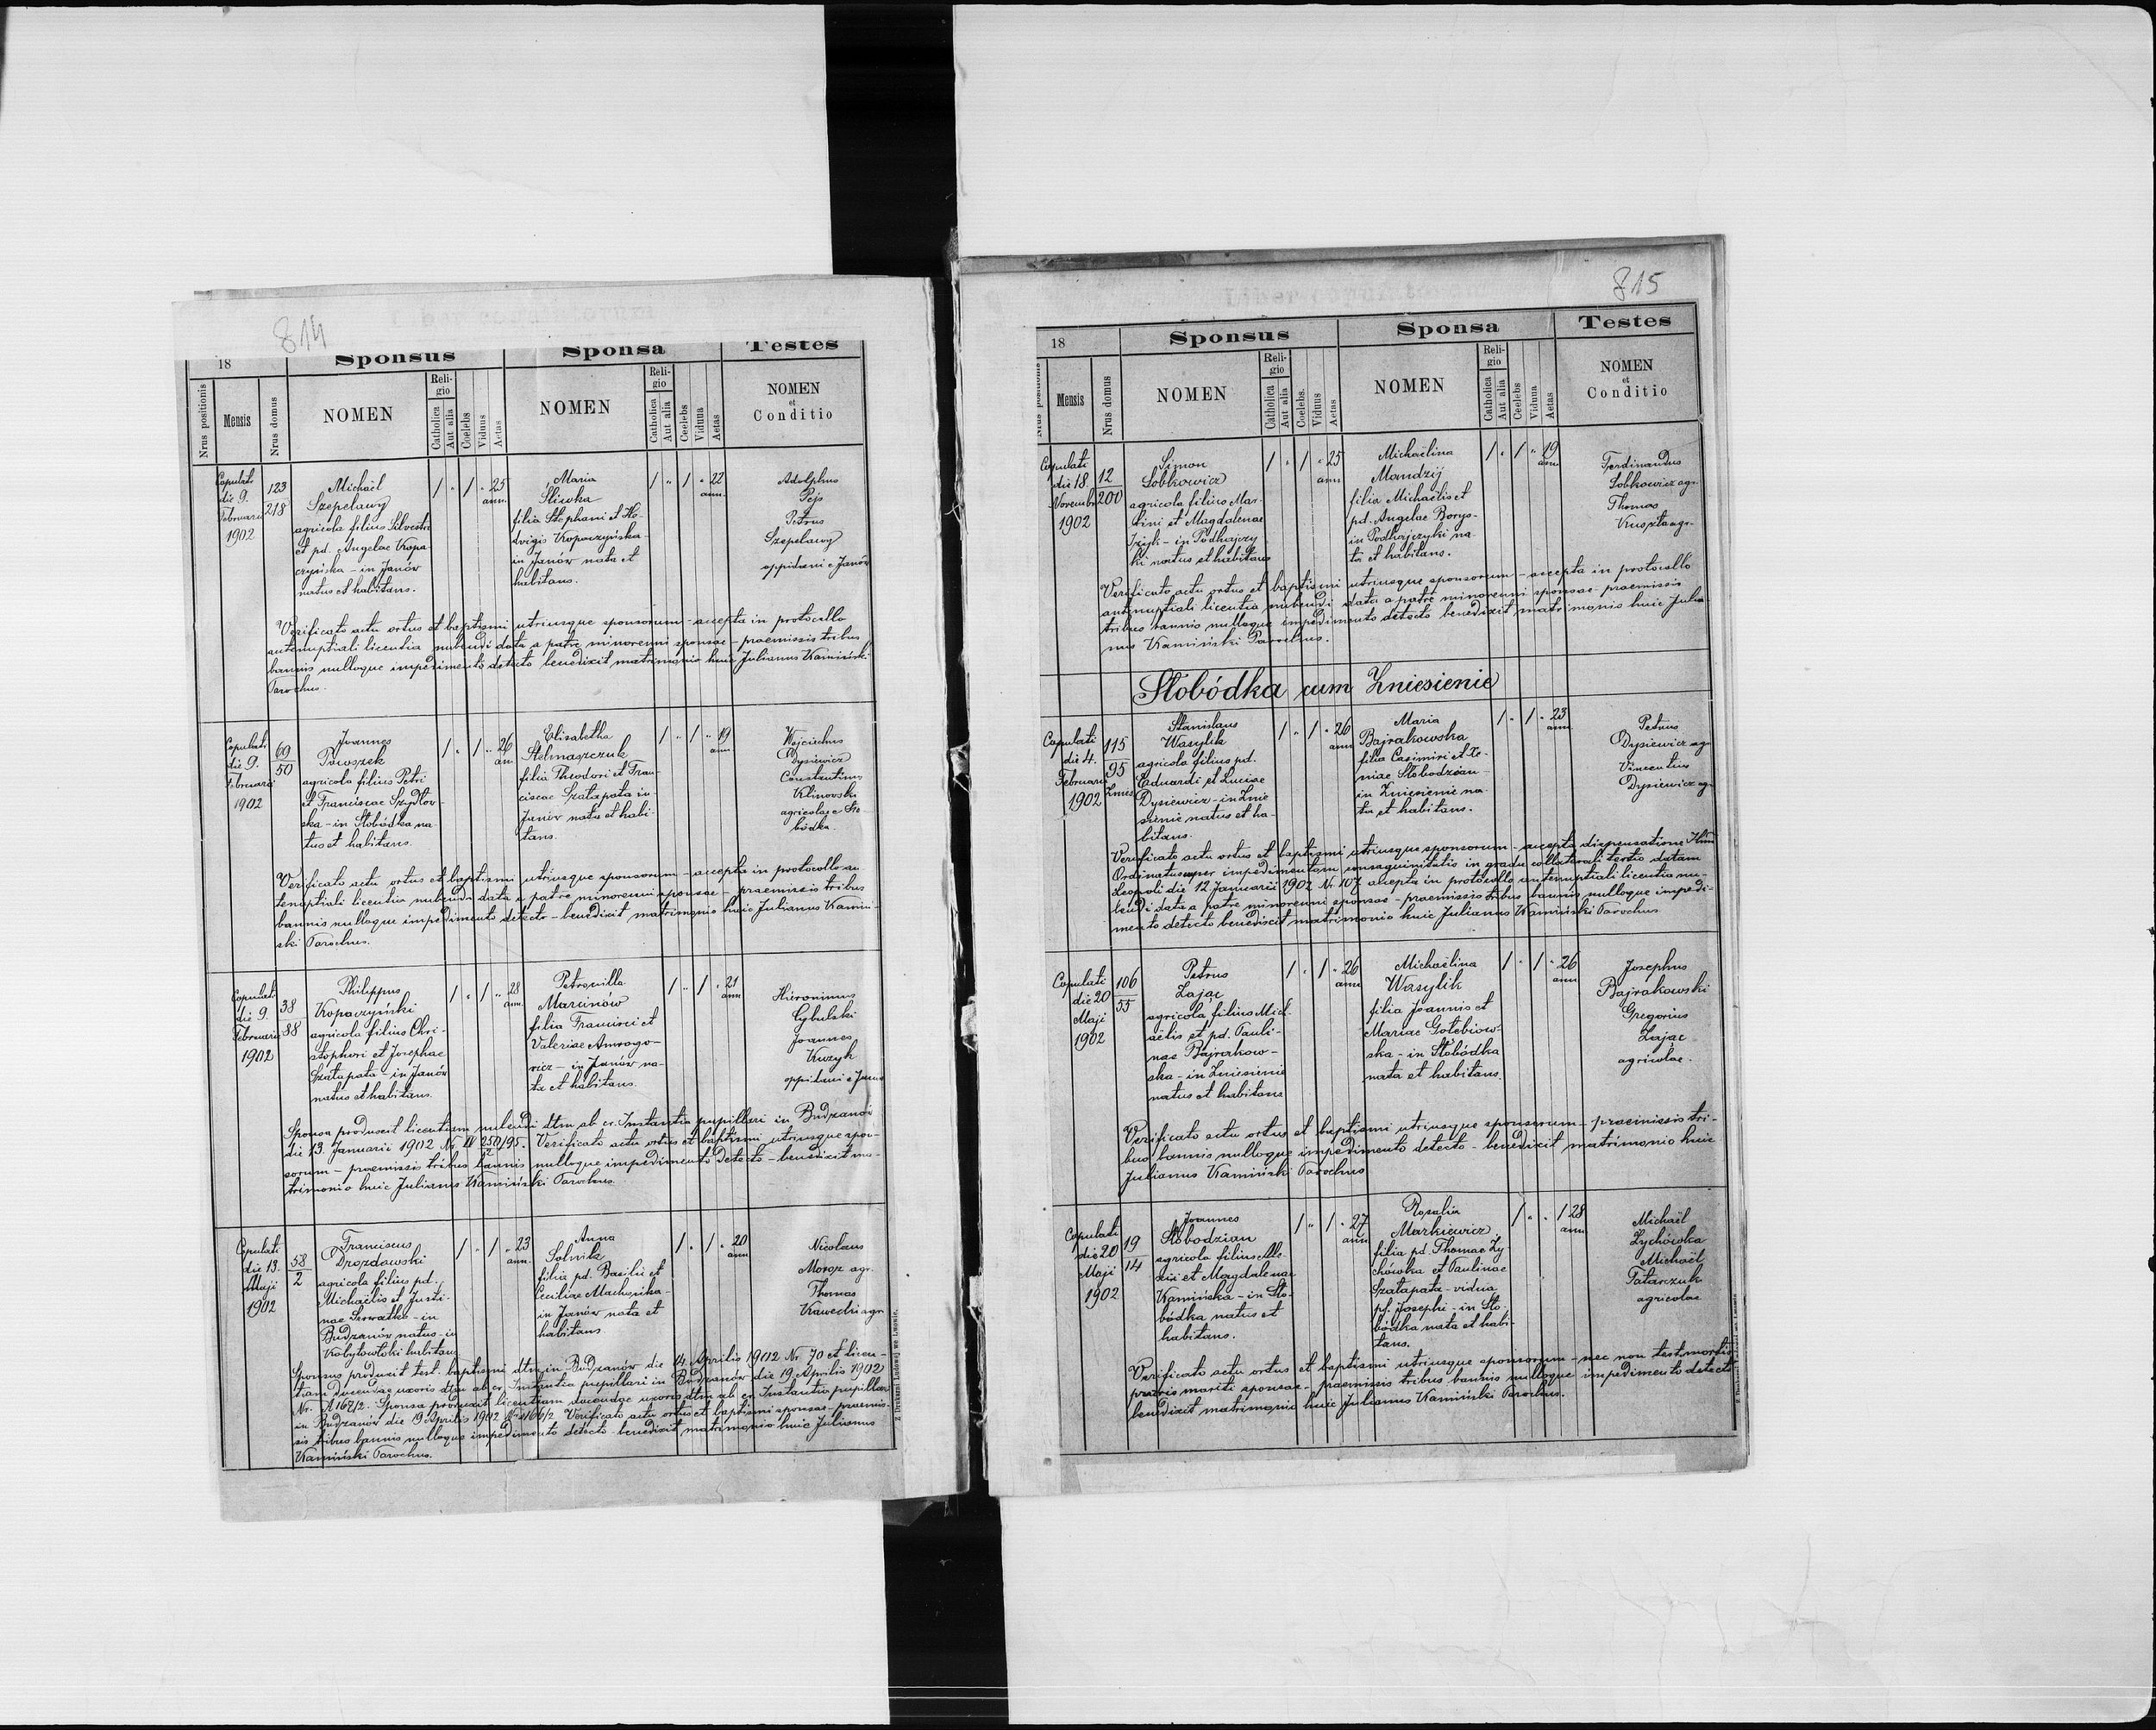 814
18
Sponsus
Sponsa
Testes
Nrus positionis
Mensis
Nrus domus
NOMEN
Religio
Catholica
Aut alia
Coelebs
Viduus
Aetas
NOMEN
Religio
Catholica
Aut alia
Ceelebs
Vidnua
Aetas
NOMEN
et
Conditio
Copulati
die 9.
Februarii
1902
123
218
Michaël
Szepelawy
agricola filius Silvestri
et pd. Angelae Kropa-
czyńska - in Janów
natus et habitans.
1 " 1 " 25
ann.
Maria
Śliwka
filia Stephani et He-
dvigis Kropaczyńska -
in Janów nata et
habitans.
1 " 1 " 22
ann.
Adolphus
Pejs
Petrus
Szepelawy
oppidani e Janów
Verificato actu ortus et baptismi utriusque sponsorum - accepta in protocollo
antenuptiali licentia nubendi data a patre minorenni sponsae - praemissis tribus
bannis nulloque impedimento detecto benedixit matrimonio huic Julianus Kamiński
Parochus.
Copulati
die 9.
Februarii
1902
69
50
Joannes
agricola filius Petri
et Franciscae Szydłow-
ska - in Słobódka na-
tus et habitans.
1 " 1 " 26
an.
Elisabetha
Stelmaszczuk
filia Theodori et Fran-
ciscae Szałapata in
Janów nata et habi-
tans.
1 " 1 " 19
ann
Wojciechus
Dysiewicz
Constantinus
Klinowski
agricolae e Sło-
bódka
Verificato actu ortus et baptismi utriusque sponsorum - accepta in protocollo an-
tenuptiali licentia nubendi data a patre minorenni sponsae - praemissis tribus
bannis nulloque impedimento detecto - benedixit matrimonio huic Julianus Kamiń-
ski Parochus.
Copulati
die 9.
Februarii
1902
38
88
Philippus
Kropaczyński
agricola filius Chri-
stophori et Josephae
Szałapata - in Janów
natus et habitans.
1 " 1 " 28
ann.
Petronilla
Marcinów
filia Francisci et
Valeriae
- in Janów na-
ta et habitans.
1 " 1 " 21
ann
Hieronimus
Cybulski
Joannes
Kuzyk
oppidani e Janów
Sponsa produxit licentiam nubendi dtm ab cr. Instantia pupillari in Budzanów
die 13. Januarii 1902 Nr. IV 250/95. Verificato actu ortus et baptismi utriusque spon-
sorum - praemissis tribus bannis nulloque impedimento detecto - benedixit ma-
trimonio huic Julianus Kamiński Parochus.
Copulati
die 13.
Maji
1902
58
2
Franciscus
Drozdowski
agricola filius pd.
Michaëlis et Justi-
nae - in
Budzanów natus - in
Kobyłowłoki habitans
1 " 1 " 23
ann.
Anna
Solnik
filia pd. Basilii et
Ceciliae
in Janów nata et
habitans
1 " 1 " 20
ann
Nicolaus
Moroz agr.
Thomas
Krawecki agr.
Sponsus produxit test. baptismi dtm in Budzanów die 14. Aprilis 1902 Nr. 70 et licen-
tiam ducendae uxoris dtm ab cr. Instantia pupillari in Budzanów die 19 Aprilis 1902
Nr. A 167/2. Sponsa produxit licentiam ducendae uxoris dtm ab cr. Instantia pupillari
in Budzanów die 19 Aprilis 1902 Nr. A 166/2 Verificato actu ortus et baptismi sponsae - praemis-
sis tribus bannis nulloque impedimento detecto - benedixit matrimonio huic Julianus
Kamiński Parochus.
Z Drukarni Ludowej we Lwowie.
815
18
Sponsus
Sponsa
Testes
Nrus positionis
Mensis
Nrus domus
NOMEN
Religio
Catholica
Aut alia
Coelebs.
Viduus
Aetas
NOMEN
Religio
Catholica
Aut alia
Ceelebs
Vidnua
Aetas
NOMEN
et
Conditio
Copulati
die 18.
Novembr
1902
12
200
Simon
Sobkowicz
agricola filius Mar-
tini et Magdalenae
- in Podhajczy-
ki natus et habitans
1 " 1 " 25
ann
Michaëlina
Mandzij
filia Michaëlis et
pd. Angelae Borys -
in Podhajczyki na-
ta et habitans.
1 " 1 " 19
ann
Ferdinandus
Sobkowicz agr.
Thomas
agr.
Verificato actu ortus et baptismi utriusque sponsorum - accepta in protocollo
antenuptiali licentia nubendi data a patre minorenni sponsae - praemissis
tribus bannis nulloque impedimento detecto benedixit matrimonio huic Julia-
nus Kamiński Parochus.
Słobódka cum Zniesienie
Copulati
die 4.
Februarii
1902
115
95
Znies
Stanislaus
Wasylik
agricola filius pd.
Eduardi et Luciae
Dysiewicz - in Znie-
sienie natus et ha-
bitans.
1 " 1 " 26
ann
Maria
Bajrakowska
filia Casimiri et Xe-
niae Słobodzian -
in Zniesienie na-
ta et habitans.
1 " 1 " 23
ann
Petrus
Dysiewicz agr
Vincentius
Dysiewicz agr
Verificato actu ortus et baptismi utriusque sponsorum - accepta dispensatione Illmi
Ordinatus super impedimentum consanguinitatis in gradu collaterali tertio datam
Leopoli die 12 Januarii 1902 Nr 107 accepta in protocollo antenuptiali licentia nu-
bendi data a patre minorenni sponsae - praemissis tribus bannis nulloque impedi-
mento detecto benedixit matrimonio huic Julianus Kamiński Parochus
Copulati
die 20
Maji
1902
106
55
Petrus
Zając
agricola filius Mich-
aelis et pd. Pauli-
nae Bajrakow-
ska - in Zniesienie
natus et habitans
1 " 1 " 26
ann
Michaëlina
Wasylik
filia Joannis et
Mariae Gołębiow-
ska - in Słobódka
nata et habitans.
1 " 1 " 26
ann
Josephus
Bajrakowski
Gregorius
Zając
agricolae.
Verificato actu ortus et baptismi utriusque sponsorum - praemissis tri-
bus bannis nulloque impedimento detecto - benedixit matrimonio huic
Julianus Kamiński Parochus
Copulati
die 20
Maji
1902
19
14
Joannes
Słobodzian
agricola filius Ale-
xii et Magdalenae
Kamińska - in Sło-
bódka natus et
habitans.
1 " 1 " 27
ann
Rosalia
Markiewicz
filia pd. Thomae Zy-
chówka et Paulinae
Szałapata - vidua
pf. Josephi - in Sło-
bódka nata et habi-
tans.
1 " " 1 28
ann
Michaël
Zychówka
Michaël
Tatarczuk
agricolae
Verificato actu ortus et baptismi utriusque sponsorum - nec non test. mortis
prioris mariti sponsae - praemissis tribus bannis nulloque impedimento detecto
benedixit matrimonio huic Julianus Kamiński Parochus.